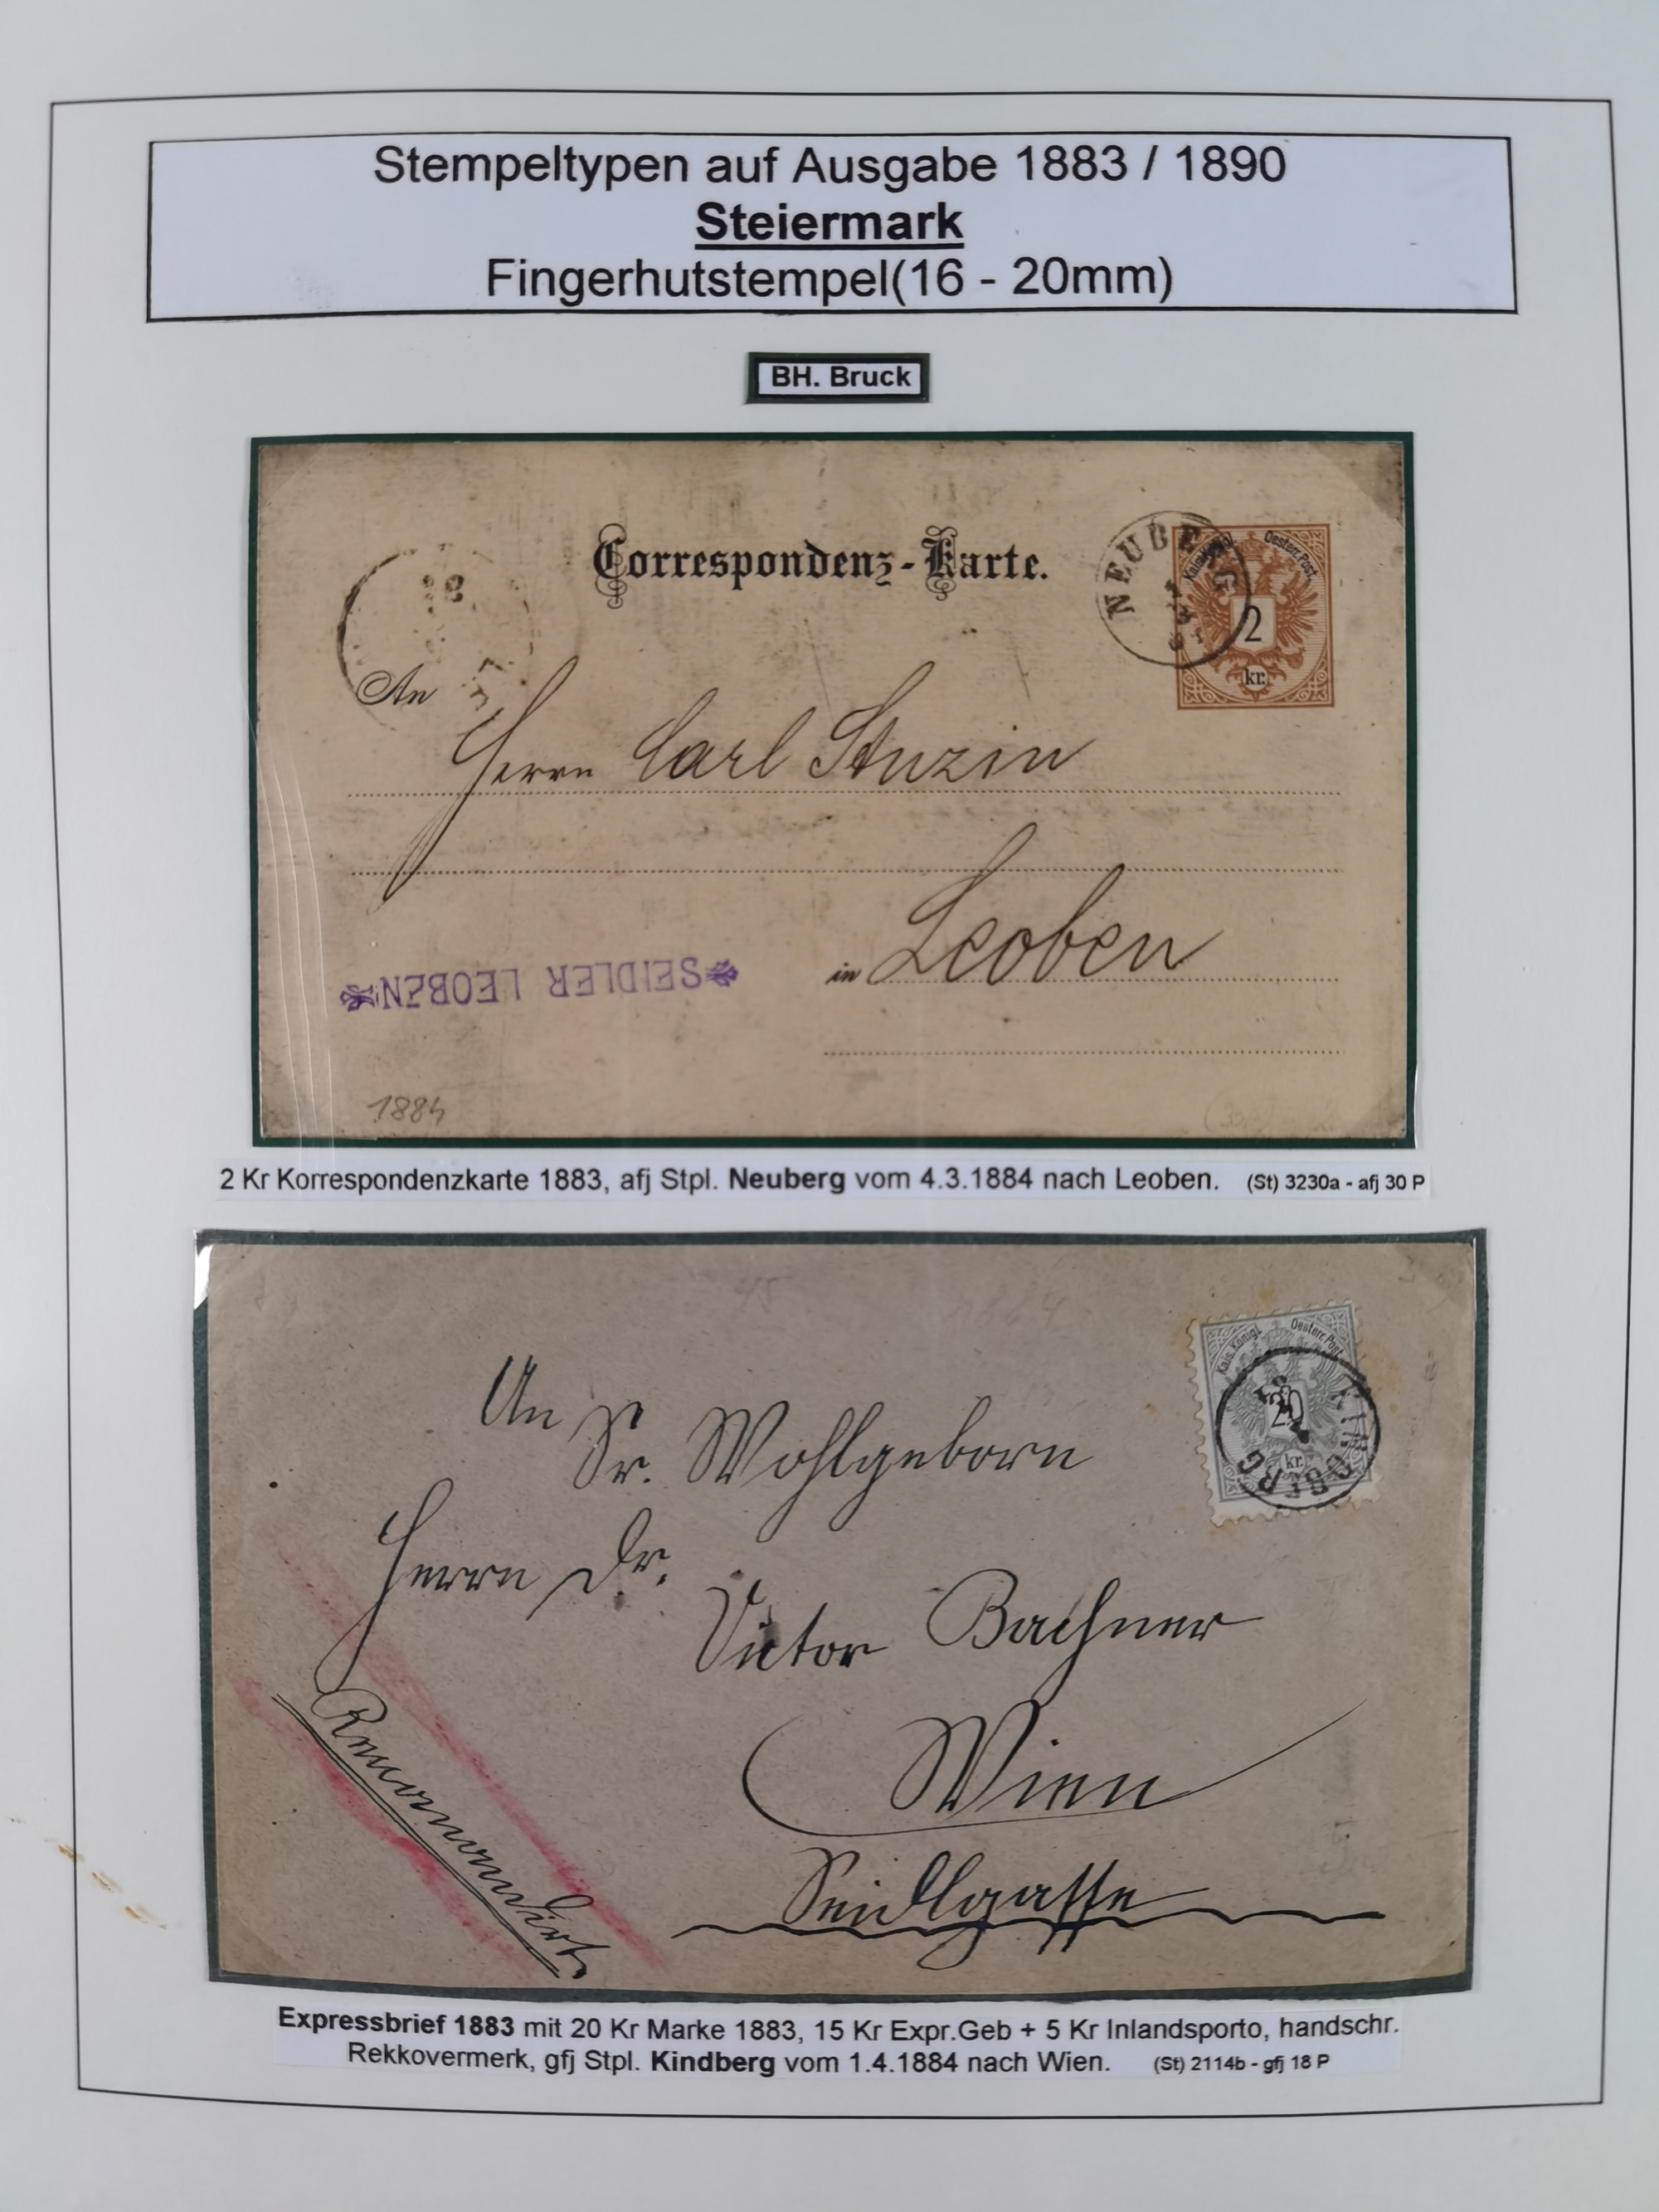 Stempeltypen auf Ausgabe 1883 / 1890
Steiermark
Fingerhutstempel(16 - 20mm)
BH. Bruck
Correspondenz-Karte.
NEUBERG
Kais. Königl. Oesterr. Post.
2
kr.
An
Herrn Carl Stuzin
in Leoben
SEIDLER LEOBEN
1884
2 Kr Korrespondenzkarte 1883, afj Stpl. Neuberg vom 4.3.1884 nach Leoben. (St) 3230a - afj 30 P
Kais. Königl. Oesterr. Post.
20
kr.
KINDBERG
An
Sr. Wohlgeborn
Herrn Dr.
Victor Bachner
Wien
Seidlgasse
Recomandirt
Expressbrief 1883 mit 20 Kr Marke 1883, 15 Kr Expr.Geb + 5 Kr Inlandsporto, handschr.
Rekkovermerk, gfj Stpl. Kindberg vom 1.4.1884 nach Wien. (St) 2114b - gfj 18 P